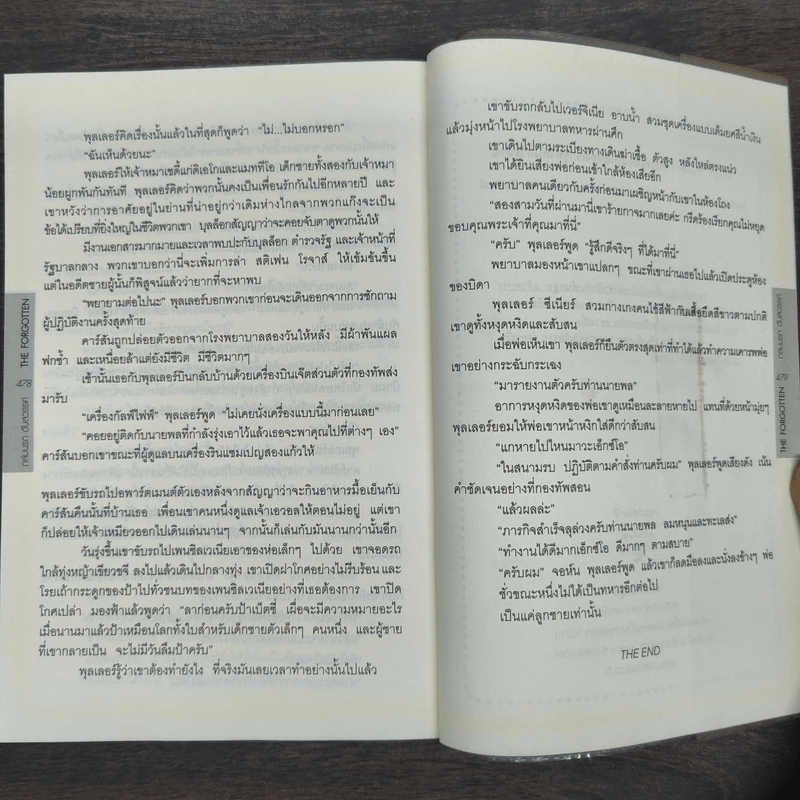 พุลเลอร์คิดเรื่องนั้นแล้วในที่สุดก็พูดว่า "ไม่...ไม่บอกหรอก"
"ฉันเห็นด้วยนะ"
พุลเลอร์ให้เจ้าหมาเซดี้แก่ดิเอโกและแมททีโอ เด็กชายทั้งสองกับเจ้าหมา
น้อยผูกพันกันทันที พุลเลอร์คิดว่าพวกนั้นคงเป็นเพื่อนรักกันไปอีกหลายปี และ
เขาหวังว่าการอาศัยอยู่ในย่านที่น่าอยู่กว่าเดิมห่างไกลจากพวกแก๊งจะเป็น
ข้อได้เปรียบที่ยิ่งใหญ่ในชีวิตพวกเขา บุลล็อกสัญญาว่าจะคอยจับตาดูพวกนั้นให้
มีงานเอกสารมากมายและเวลาพบปะกับบุลล็อก ตำรวจรัฐ และเจ้าหน้าที่
รัฐบาลกลาง พวกเขาบอกว่านี่จะเพิ่มการล่า สติเฟน โรจาส์ ให้เข้มข้นขึ้น
แต่ในอดีตชายผู้นั้นก็พิสูจน์แล้วว่ายากที่จะหาพบ
"พยายามต่อไปนะ" พุลเลอร์บอกพวกเขาก่อนจะเดินออกจากการซักถาม
ผู้ปฏิบัติงานครั้งสุดท้าย
คาร์สันถูกปล่อยตัวออกจากโรงพยาบาลสองวันให้หลัง มีผ้าพันแผล
ฟกช้ำ และเหนื่อยล้าแต่ยังมีชีวิต มีชีวิตมากๆ
เช้านั้นเธอกับพุลเลอร์บินกลับบ้านด้วยเครื่องบินเจ็ตส่วนตัวที่กองทัพส่ง
มารับ
"เครื่องกัลฟ์ไฟฟ์" พุลเลอร์พูด "ไม่เคยนั่งเครื่องแบบนี้มาก่อนเลย"
"คอยอยู่ติดกับนายพลที่กำลังรุ่งเอาไว้แล้วเธอจะพาคุณไปที่ต่างๆ เอง"
คาร์สันบอกเขาขณะที่ผู้ดูแลบนเครื่องรินแชมเปญสองแก้วให้
พุลเลอร์ขับรถไปอพาร์ตเมนต์ตัวเองหลังจากสัญญาว่าจะกินอาหารมื้อเย็นกับ
คาร์สันคืนนั้นที่บ้านเธอ เพื่อนเขาคนหนึ่งดูแลเจ้าเอวอลให้ตอนไม่อยู่ แต่เขา
ก็ปล่อยให้เจ้าเหมียวออกไปเดินเล่นนานๆ จากนั้นก็เล่นกับมันนานกว่านั้นอีก
วันรุ่งขึ้นเขาขับรถไปเพนซิลเวเนียเอาของห่อเล็กๆ ไปด้วย เขาจอดรถ
ใกล้ทุ่งหญ้าเขียวขจี ลงไปแล้วเดินไปกลางทุ่ง เขาเปิดฝาโกศอย่างไม่รีบร้อน และ
โรยเถ้ากระดูกของป้าไปทั่วชนบทของเพนซิลเวเนียอย่างที่เธอต้องการ เขาปิด
โกศเปล่า มองฟ้าแล้วพูดว่า "ลาก่อนครับป้าเบ็ตซี่ เผื่อจะมีความหมายอะไร
เมื่อนานมาแล้วป้าเหมือนโลกทั้งใบสำหรับเด็กชายตัวเล็กๆ คนหนึ่ง และผู้ชาย
ที่เขากลายเป็น จะไม่มีวันลืมป้าครับ"
พุลเลอร์รู้ว่าเขาต้องทำยังไง ที่จริงมันเลยเวลาทำอย่างนั้นไปแล้ว
THE FORGOTTEN
กลิ่นนรก ดินสวรรค์
เขาขับรถกลับไปเวอร์จิเนีย อาบน้ำ สวมชุดเครื่องแบบเต็มยศสีน้ำเงิน
แล้วมุ่งหน้าไปโรงพยาบาลทหารผ่านศึก
เขาเดินไปตามระเบียงทางเดินฆ่าเชื้อ ตัวสูง หลังไหล่ตรงแน่ว
เขาได้ยินเสียงพ่อก่อนเข้าใกล้ห้องเสียอีก
พยาบาลคนเดียวกับครั้งก่อนมาเผชิญหน้ากับเขาในห้องโถง
"สองสามวันที่ผ่านมานี่เขาร้ายกาจมากเลยค่ะ กรีดร้องเรียกคุณไม่หยุด
ขอบคุณพระเจ้าที่คุณมาที่นี่"
"ครับ" พุลเลอร์พูด "รู้สึกดีจริงๆ ที่ได้มาที่นี่"
พยาบาลมองหน้าเขาแปลกๆ ขณะที่เขาผ่านเธอไปแล้วเปิดประตูห้อง
ของบิดา
พุลเลอร์ ซีเนียร์ สวมกางเกงคนไข้สีฟ้ากับเสื้อยืดสีขาวตามปกติ
เขาดูทั้งหงุดหงิดและสับสน
เมื่อพ่อเห็นเขา พุลเลอร์ก็ยืนตัวตรงสุดเท่าที่ทำได้แล้วทำความเคารพพ่อ
เขาอย่างกระฉับกระเฉง
"มารายงานตัวครับท่านนายพล"
อาการหงุดหงิดของพ่อเขาดูเหมือนละลายหายไป แทนที่ด้วยหน้ามุ่ยๆ
พุลเลอร์ยอมให้พ่อเขาหน้าหงิกใส่ดีกว่าสับสน
"แกหายไปไหนมาวะเอ็กซ์โอ"
"ในสนามรบ ปฏิบัติตามคำสั่งท่านครับผม" พุลเลอร์พูดเสียงดัง เน้น
คำชัดเจนอย่างที่กองทัพสอน
"แล้วผลล่ะ"
"ภารกิจสำเร็จลุล่วงครับท่านนายพล ลมหนุนและทะเลส่ง"
"ทำงานได้ดีมากเอ็กซ์โอ ดีมากๆ ตามสบาย"
"ครับผม" จอห์น พุลเลอร์พูด แล้วเขาก็ลดมือลงและนั่งลงข้างๆ พ่อ
ชั่วขณะหนึ่งไม่ได้เป็นทหารอีกต่อไป
เป็นแค่ลูกชายเท่านั้น
THE END
THE FORGOTTEN
กลิ่นนรก ดินสวรรค์